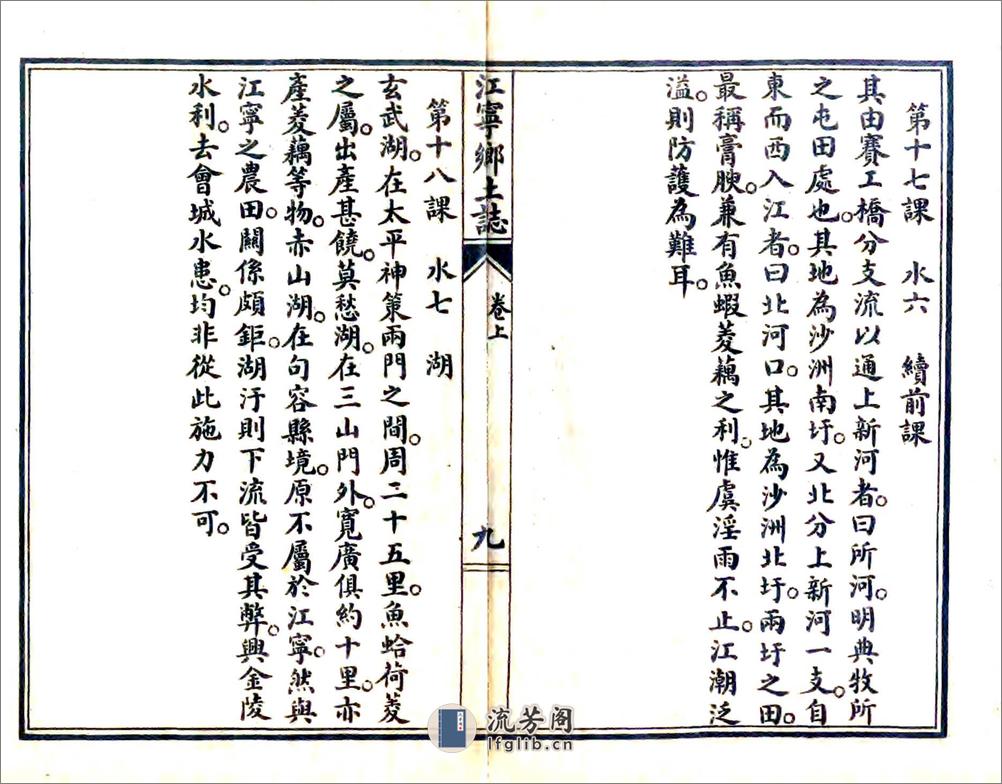 第十七課　水六　續前課
其由賽工橋分支流以通上新河者。曰所河。明典牧所
之屯田處也。其地為沙洲南圩。又北分上新河一支。自
東而西入江者。曰北河口。其地為沙洲北圩。兩圩之田。
最稱膏腴。兼有魚蝦菱藕之利。惟虞淫雨不止。江潮泛
溢。則防護為難耳。
江寧鄉土誌
卷上
九
第十八課　水七　湖
玄武湖。在太平神策兩門之間。周二十五里。魚蛤荷菱
之屬。出產甚饒。莫愁湖。在三山門外。寬廣俱約十里。亦
產菱藕等物。赤山湖。在句容縣境。原不屬於江寧。然與
江寧之農田。關係頗鉅。湖汙則下流皆受其弊。興金陵
水利。去會城水患。均非從此施力不可。
流芳阁
lfglib.cn